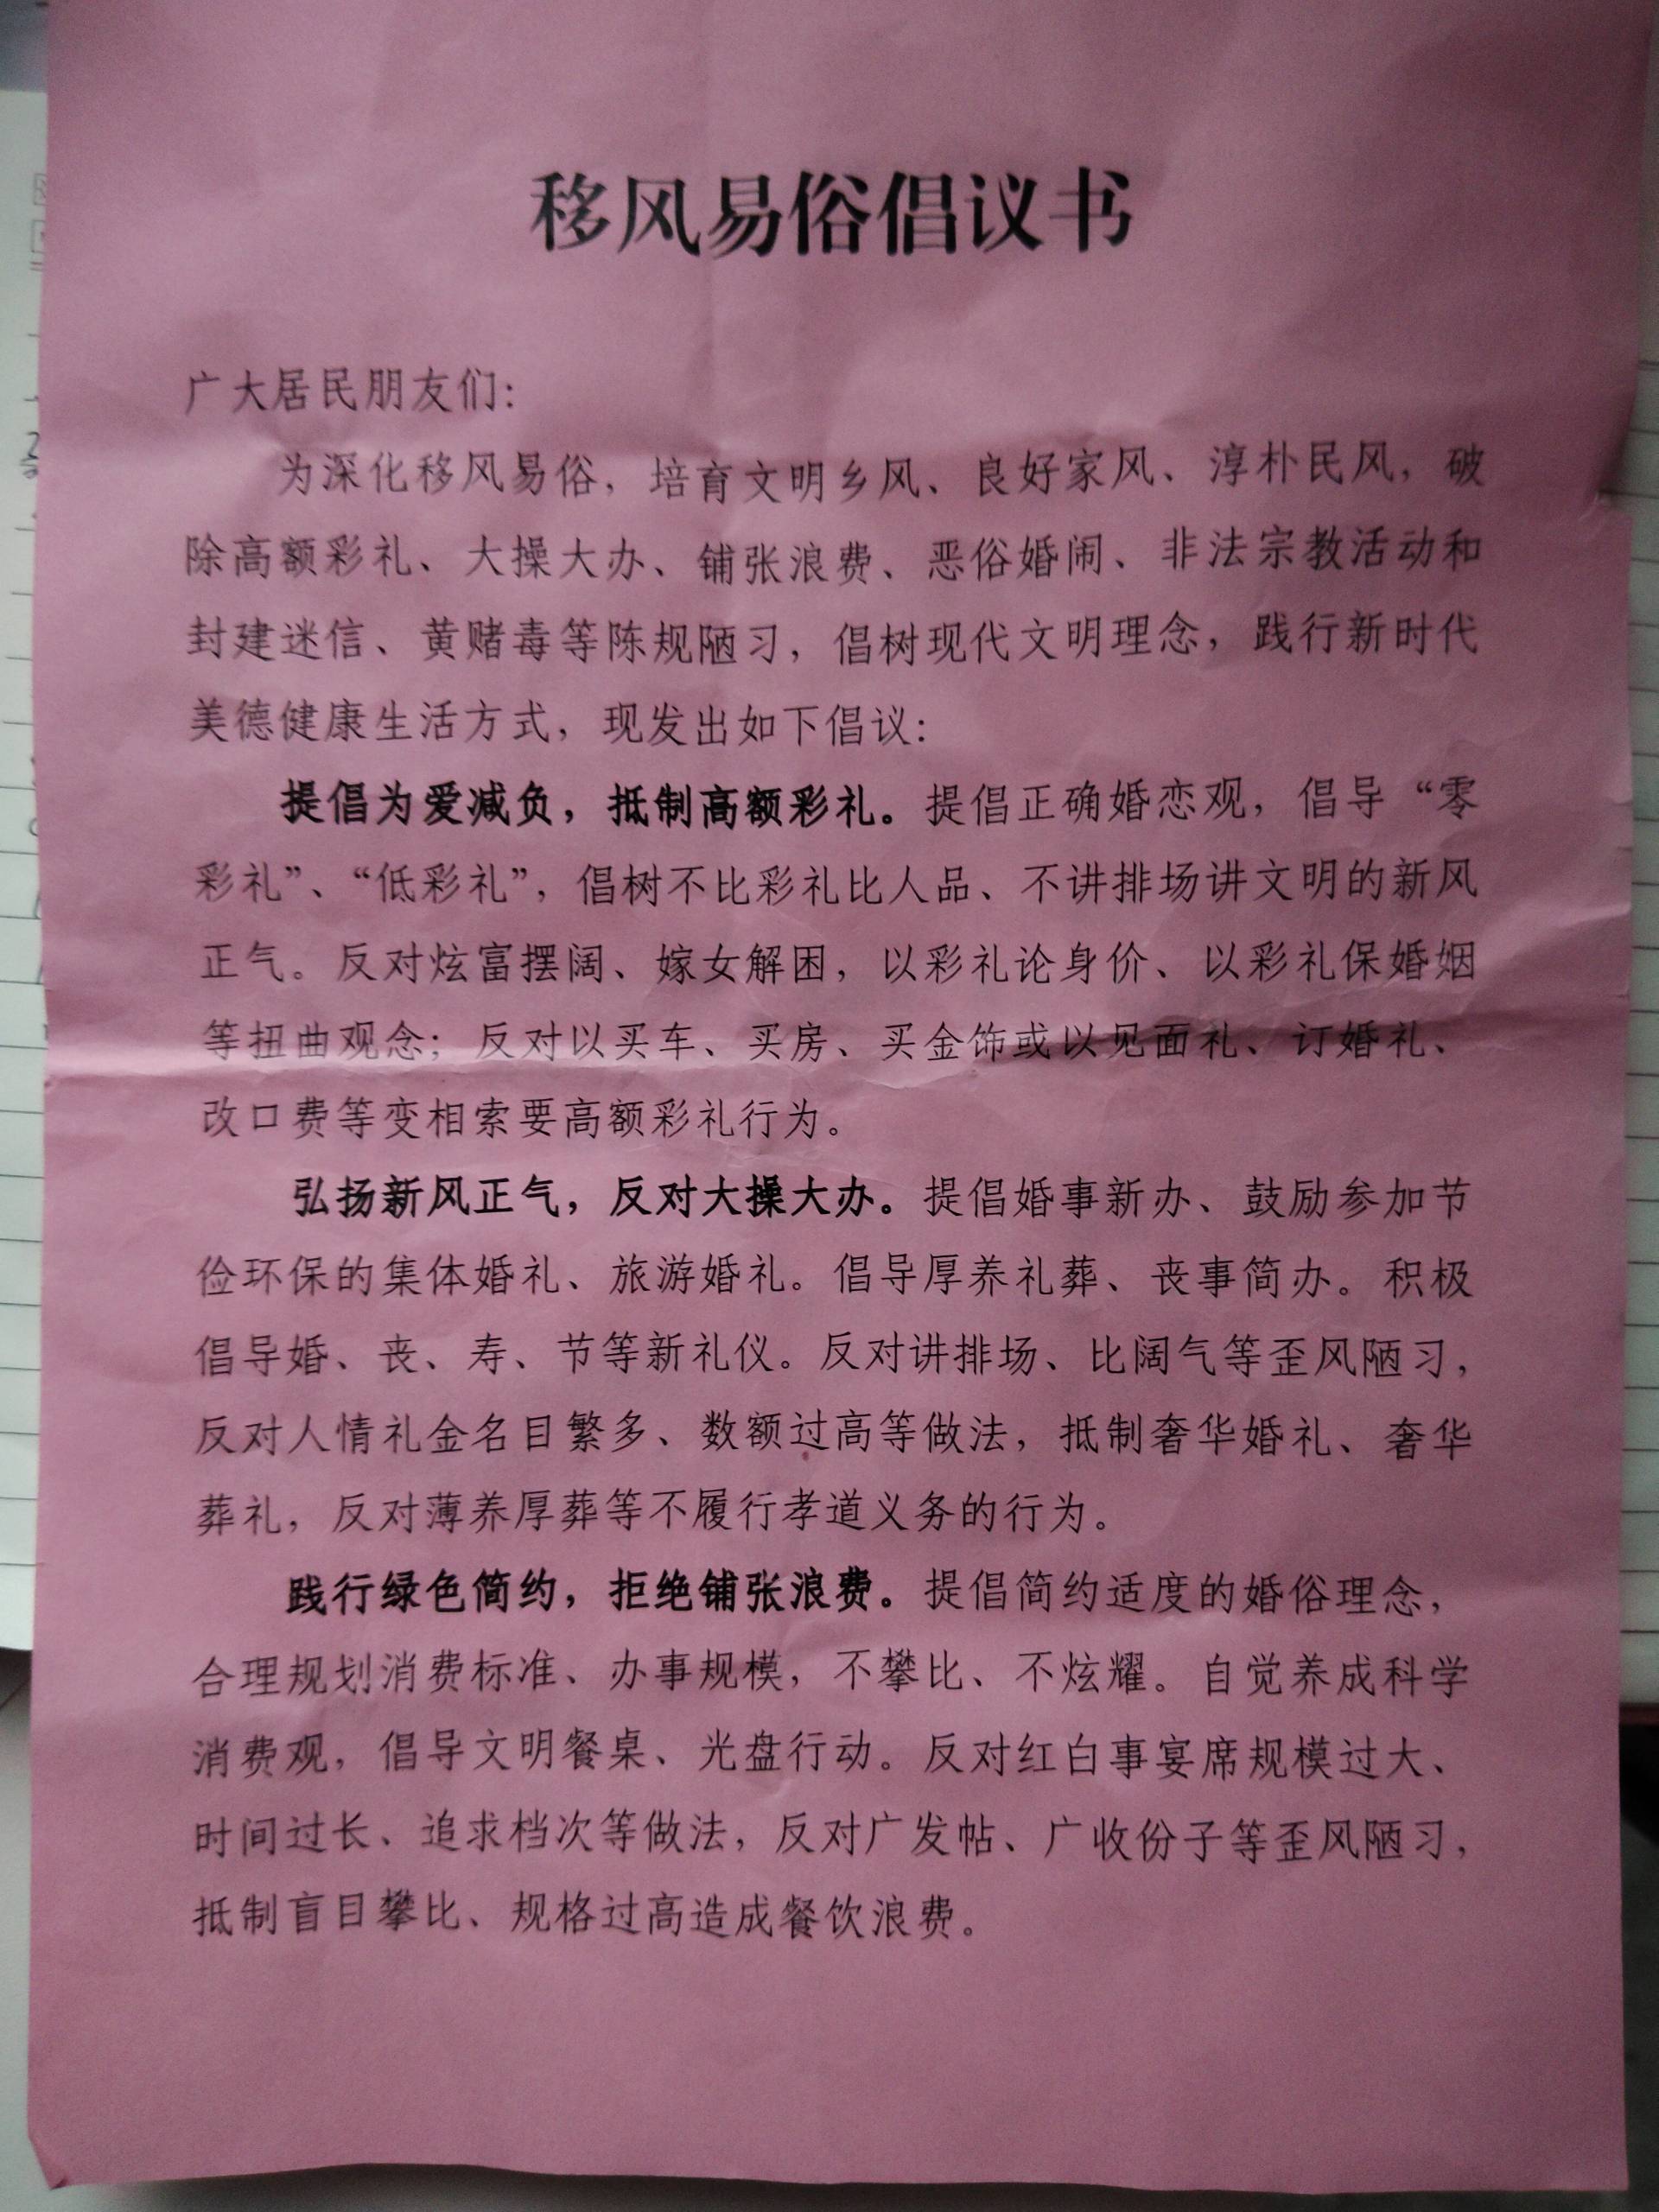 移风易俗倡议书
广大居民朋友们：
为深化移风易俗，培育文明乡风、良好家风、淳朴民风，破
除高额彩礼、大操大办、铺张浪费、恶俗婚闹、非法宗教活动和
封建迷信、黄赌毒等陈规陋习，倡树现代文明理念，践行新时代
美德健康生活方式，现发出如下倡议：
提倡为爱减负，抵制高额彩礼。提倡正确婚恋观，倡导“零
彩礼”、“低彩礼”，倡树不比彩礼比人品、不讲排场讲文明的新风
正气。反对炫富摆阔、嫁女解困，以彩礼论身价、以彩礼保婚姻
等扭曲观念；反对以买车、买房、买金饰或以见面礼、订婚礼、
改口费等变相索要高额彩礼行为。
弘扬新风正气，反对大操大办。提倡婚事新办、鼓励参加节
俭环保的集体婚礼、旅游婚礼。倡导厚养礼葬、丧事简办。积极
倡导婚、丧、寿、节等新礼仪。反对讲排场、比阔气等歪风陋习，
反对人情礼金名目繁多、数额过高等做法，抵制奢华婚礼、奢华
葬礼，反对薄养厚葬等不履行孝道义务的行为。
践行绿色简约，拒绝铺张浪费。提倡简约适度的婚俗理念，
合理规划消费标准、办事规模，不攀比、不炫耀。自觉养成科学
消费观，倡导文明餐桌、光盘行动。反对红白事宴席规模过大、
时间过长、追求档次等做法，反对广发帖、广收份子等歪风陋习，
抵制盲目攀比、规格过高造成餐饮浪费。